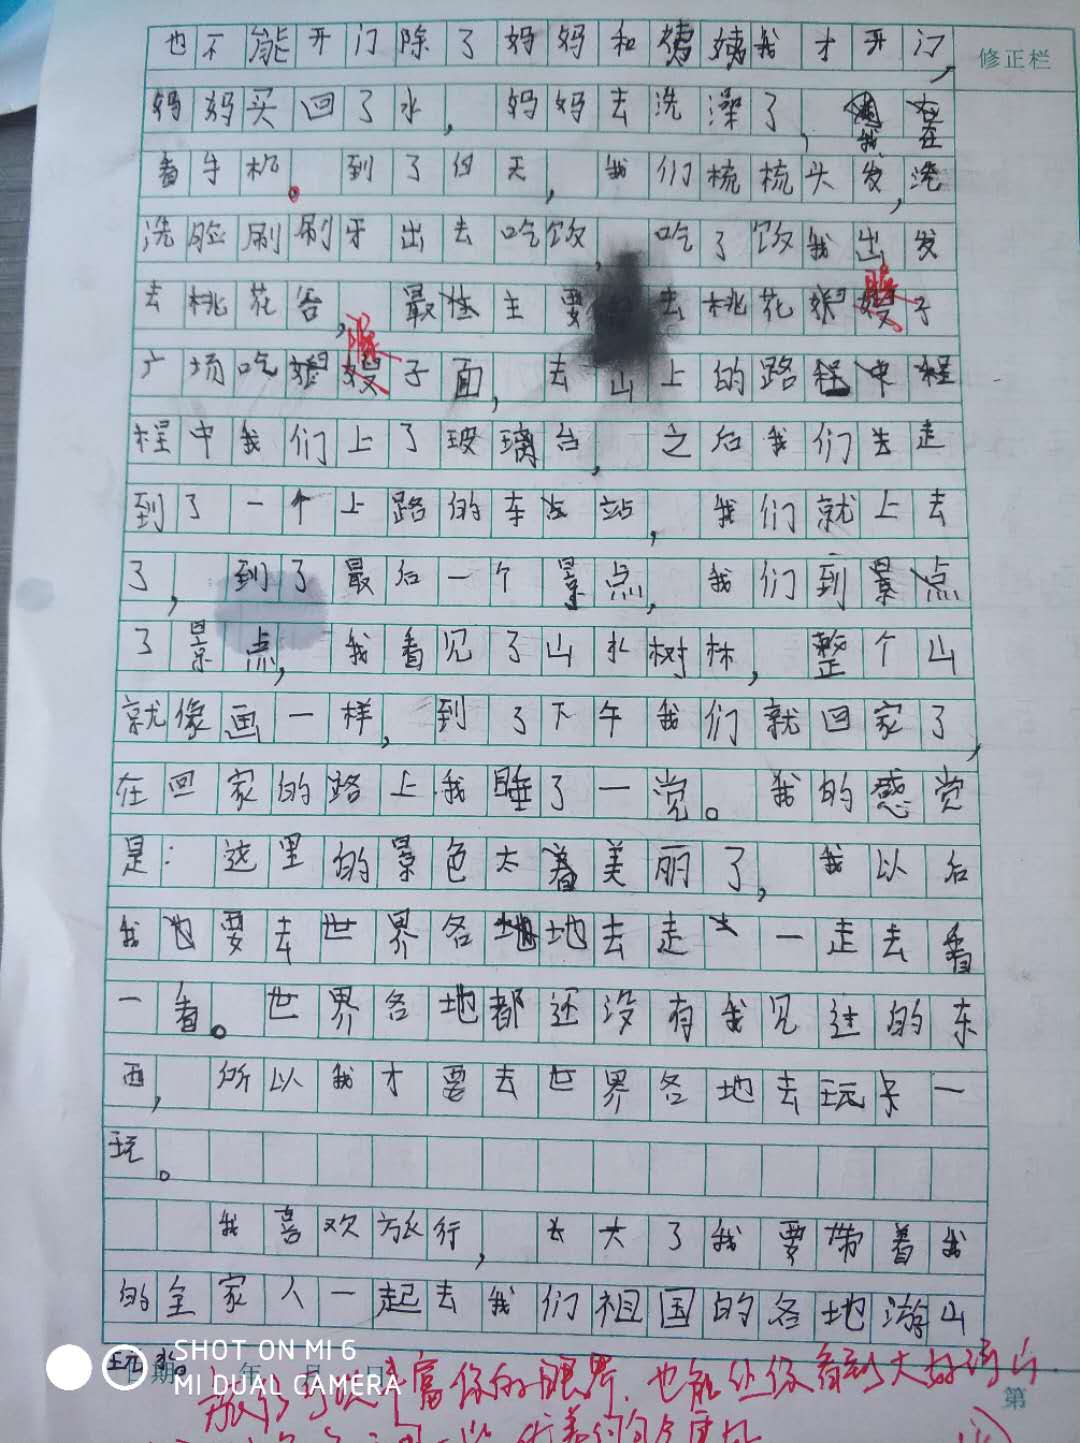 也不能开门除了妈妈和姨姨我才开门,
修正栏
妈妈买回了水,妈妈去洗澡了,我在
看手机。到了白天,我们梳梳头发,洗
洗脸刷刷牙出去吃饭,吃了饭我出发
去桃花谷,最主要去桃花嫂子
臊
广场吃臊子面,去山上的路
程中我们上了玻璃台,之后我们去走
到了一个上路的车站,我们就上去
了,到了最后一个景点,我们到
了景点,我看见了山水树林,整个山
就像画一样,到了下午我们就回家了,
在回家的路上我睡了一觉。我的感觉
是:这里的景色太美丽了,我以后
我也要去世界各地去走一走去看
一看。世界各地都还没有我见过的东
西,所以我才要去世界各地去玩一
玩。
我喜欢旅行,长大了我要带着我
的全家人一起去我们祖国的各地游山
玩水。
SHOT ON MI 6
MI DUAL CAMERA
年 月 日
富你的眼界,也能让你看到大好河山
第